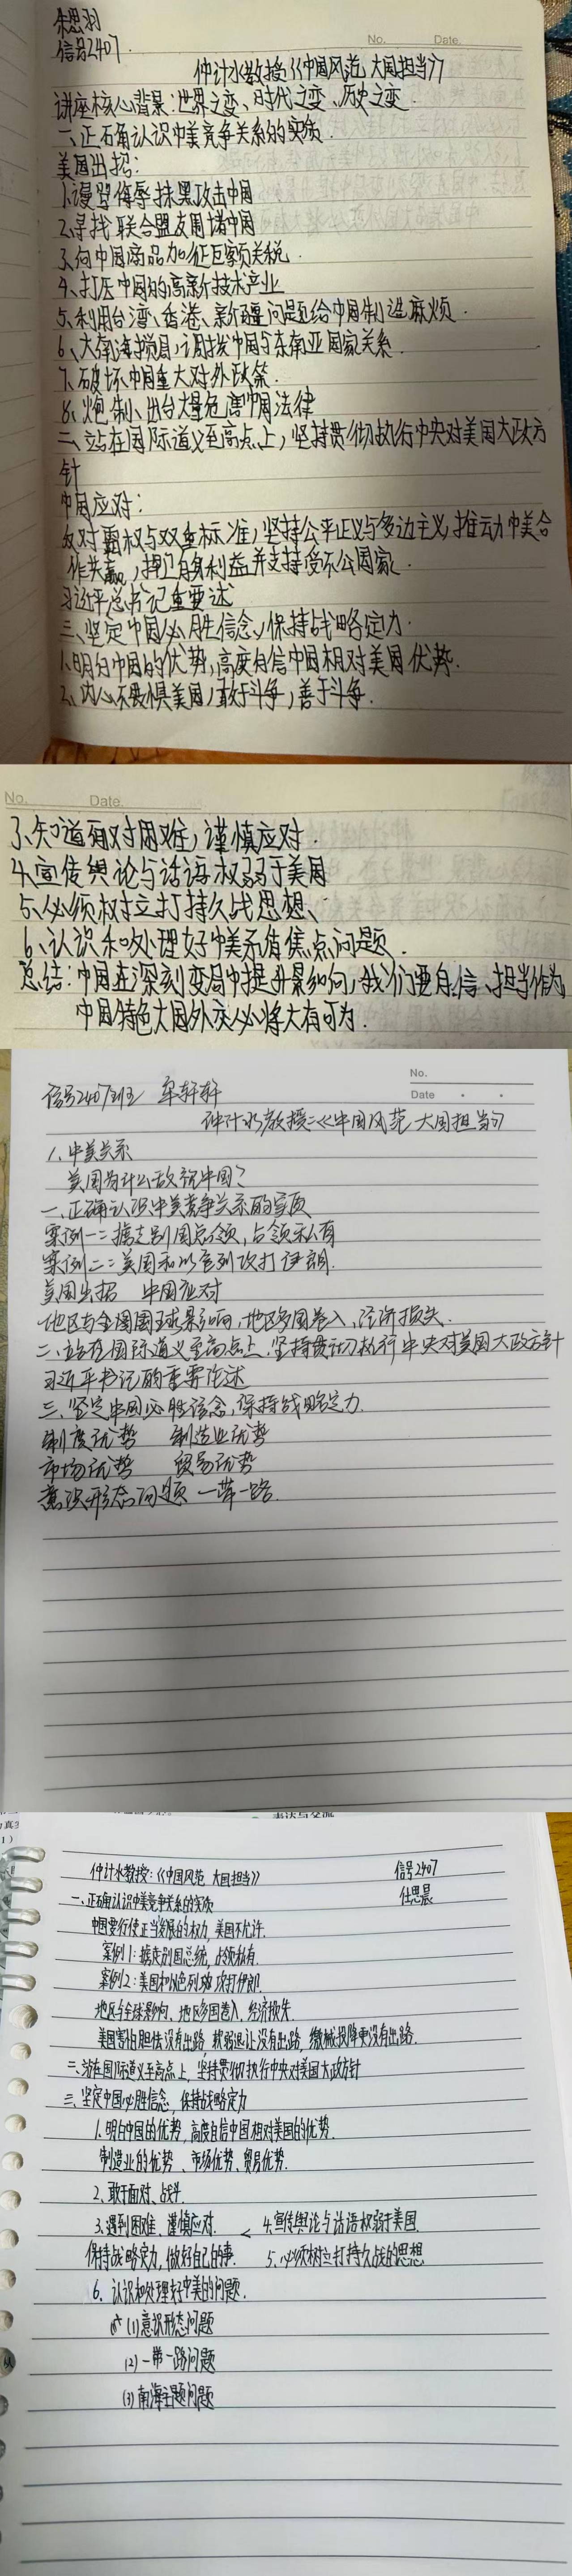 朱思羽
信号2407.
No. Date.
仲计水教授《中国风范 大国担当》
讲座核心背景:世界之变、时代之变、历史之变.
一、正确认识中美竞争关系的实质.
美国出招:
1.谩骂侮辱抹黑攻击中国
2.寻找联合盟友围堵中国
3.向中国商品加征巨额关税.
4、打压中国的高新技术产业
5、利用台湾、香港、新疆问题给中国制造麻烦.
6、大南海搅局,挑拨中国与东南亚国家关系.
7、破坏中国重大对外政策.
8、炮制、出台大量危害中国法律
二、站在国际道义至高点上,坚持贯彻执行中央对美国大政方
针
中国应对:
反对霸权与双重标准,坚持公平正义与多边主义,推动中美合
作共赢,捍卫自身利益并支持受不公国家.
习近平总书记重要述
三、坚定中国必胜信念,保持战略定力.
1.明白中国的优势,高度自信中国相对美国优势.
2、内心不畏惧美国,敢于斗争,善于斗争.
No. Date.
3、知道面对困难,谨慎应对.
4、宣传舆论与话语权弱于美国
5、必须树立打持久战思想、
6、认识和处理好中美矛盾焦点问题.
总结:中国在深刻变局中提升影响,我们要自信、担当作为,
中国特色大国外交必将大有可为.
No.
Date
信号2407班 牟轩轩
仲计水教授:《中国风范 大国担当》
1.中美关系
美国为什么敌视中国?
一.正确认识中美竞争关系的实质
案例一:掳走别国总统,占领私有
案例二:美国和以色列攻打伊朗.
美国出招 中国应对
地区与全国国球影响,地区多国卷入,经济损失.
二、站在国际道义至高点上,坚持贯彻执行中央对美国大政方针
习近平书记的重要论述
三、坚定中国必胜信念,保持战略定力.
制度优势 制造业优势
市场优势 贸易优势
意识形态问题 一带一路.
仲计水教授:《中国风范 大国担当》 信号2407
仕思晨
一、正确认识中美竞争关系的实质
中国要行使正当发展的权力,美国不允许.
案例1:掳走别国总统,占领私有.
案例2:美国和以色列攻打伊朗.
地区与全球影响、地区多国卷入、经济损失.
美国害怕胆怯没有出路,软弱退让没有出路,缴械投降更没有出路.
二、站在国际道义至高点上,坚持贯彻执行中央对美国大政方针
三、坚定中国必胜信念,保持战略定力
1.明白中国的优势,高度自信中国相对美国的优势.
制造业的优势、市场优势、贸易优势.
2、敢于面对、战斗.
3、遇到困难、谨慎应对. < 4.宣传舆论与话语权弱于美国.
保持战略定力,做好自己的事. 5、必须树立打持久战的思想
6、认识和处理好中美的问题.
(1)意识形态问题
(2)一带一路问题
(3)南海主题问题